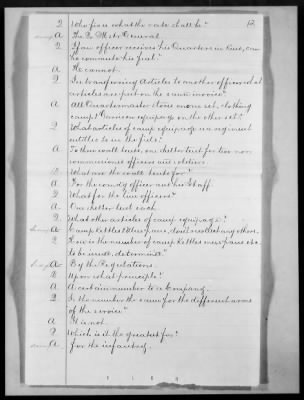 Q Who fixes what the rate shall be?
12
A The Qr Mstr General
Q If an officer receives his Quarters in kind, can
he commute his fuel?
A He cannot.
Q In transferring Articles to another officer what
articles are put on the same invoice?
A All Quartermaster stores on one set, clothing
camp & Garrison equipage on the other set?
Q What articles of camp equipage is a regiment
entitled to in the field?
A To three wall tents, one shelter tent for two non
commissioned officers and soldiers.
Q What are the wall tents for?
A For the comdg officer and his Staff.
Q What for the line officers?
A One shelter tent each.
Q What other articles of camp equipage?
A Camp Kettles & Mess pans, dont recollect any others.
Q How is the number of camp kettles mess pans etc.
to be used, determined?
A By the Regulations
Q Upon what principle?
A A certain number to a Company.
Q Is the number the same for the different arms
of the service?
A It is not.
Q Which is it the greatest for?
A For the infantry.